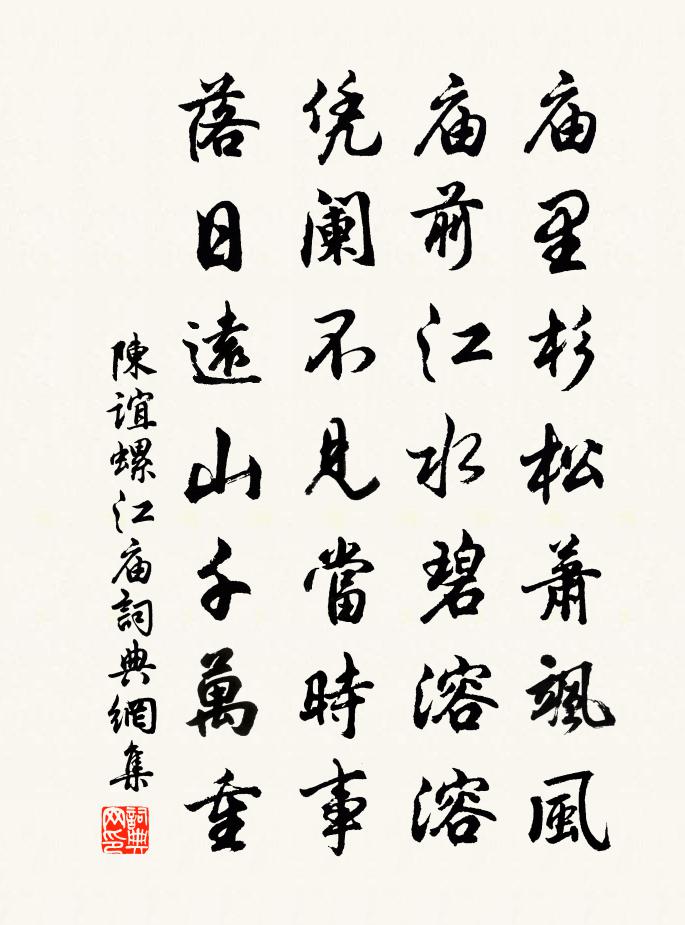 庙里杉松萧飒風
庙前江水碧溶溶
凭阑不見當時事
落日遠山千萬重
陳誼螺江庙詞典網集
詞典网印